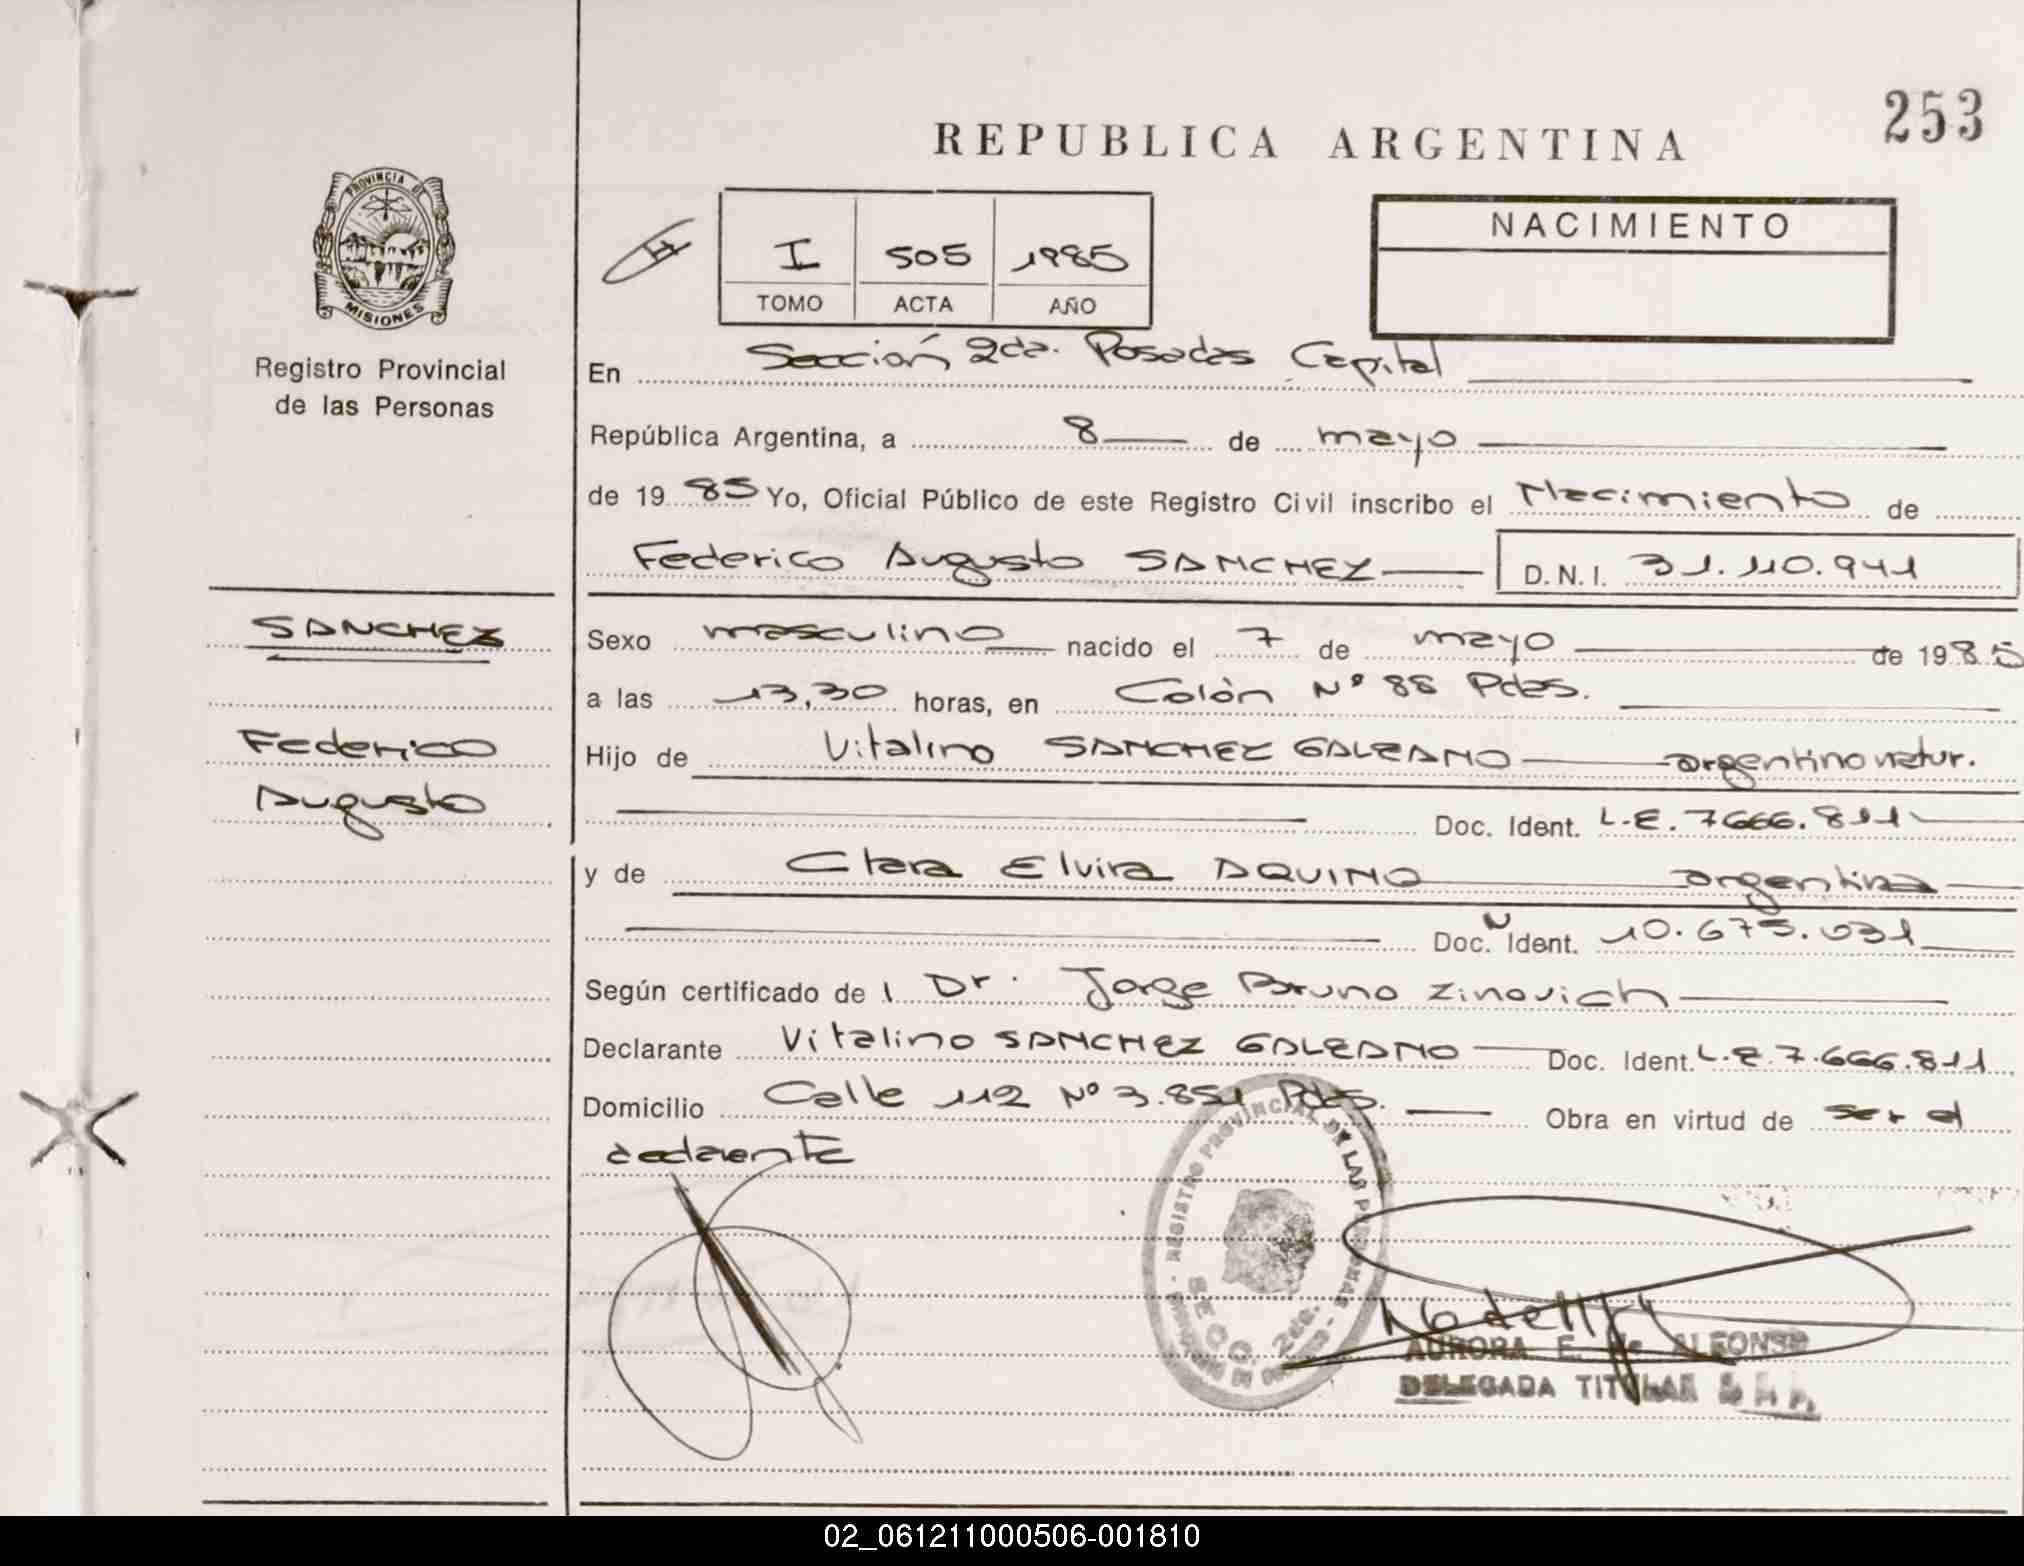 253
REPUBLICA ARGENTINA
PROVINCIA DE
MISIONES
Registro Provincial
de las Personas
I 505 1985
TOMO ACTA AÑO
NACIMIENTO
En Sección 2da. Posadas Capital
República Argentina, a 8 de mayo
de 1985 Yo, Oficial Público de este Registro Civil inscribo el Nacimiento de
Federico Augusto SANCHEZ D.N.I. 31.110.941
SANCHEZ
Federico
Augusto
Sexo masculino nacido el 7 de mayo de 1985
a las 13,30 horas, en Colón Nº 88 Pdas.
Hijo de Vitalino SANCHEZ GALEANO argentino natur.
Doc. Ident. L.E. 7666.811
y de Clara Elvira AQUINO argentina
Doc. N Ident. 10.675.031
Según certificado de l Dr. Jorge Bruno Zinovich
Declarante Vitalino SANCHEZ GALEANO Doc. Ident. L.E. 7.666.811
Domicilio Calle 112 Nº 3.851 Pdas. Obra en virtud de ser el
declarante
REGISTRO PROVINCIAL DE LAS PERSONAS
SECC. 2da.
AURORA E. de ALFONSO
DELEGADA TITULAR
02_061211000506-001810